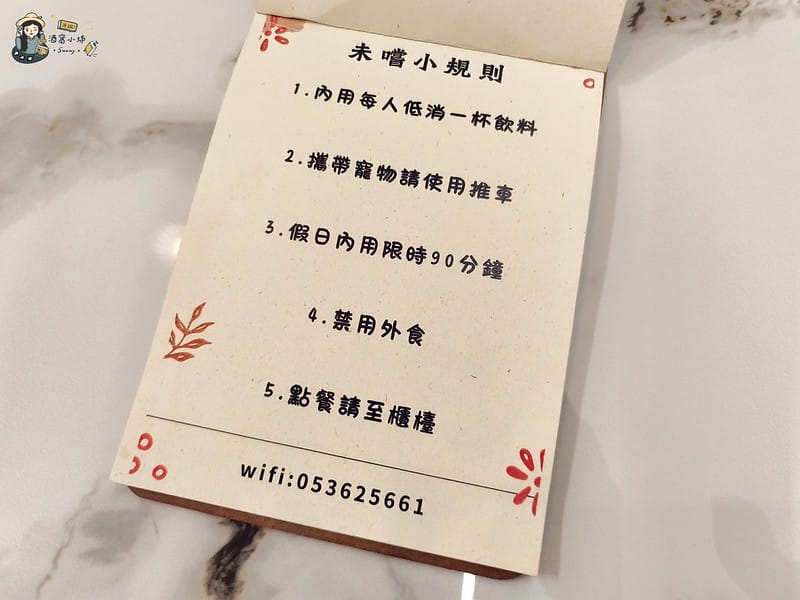 酒窩小姊
Sunny
未嚐小規則
1.內用每人低消一杯飲料
2.攜帶寵物請使用推車
3.假日內用限時90分鐘
4.禁用外食
5.點餐請至櫃檯
wifi:053625661